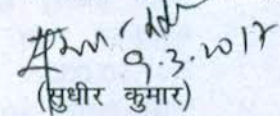 9.3.2017
(सुधीर कुमार)